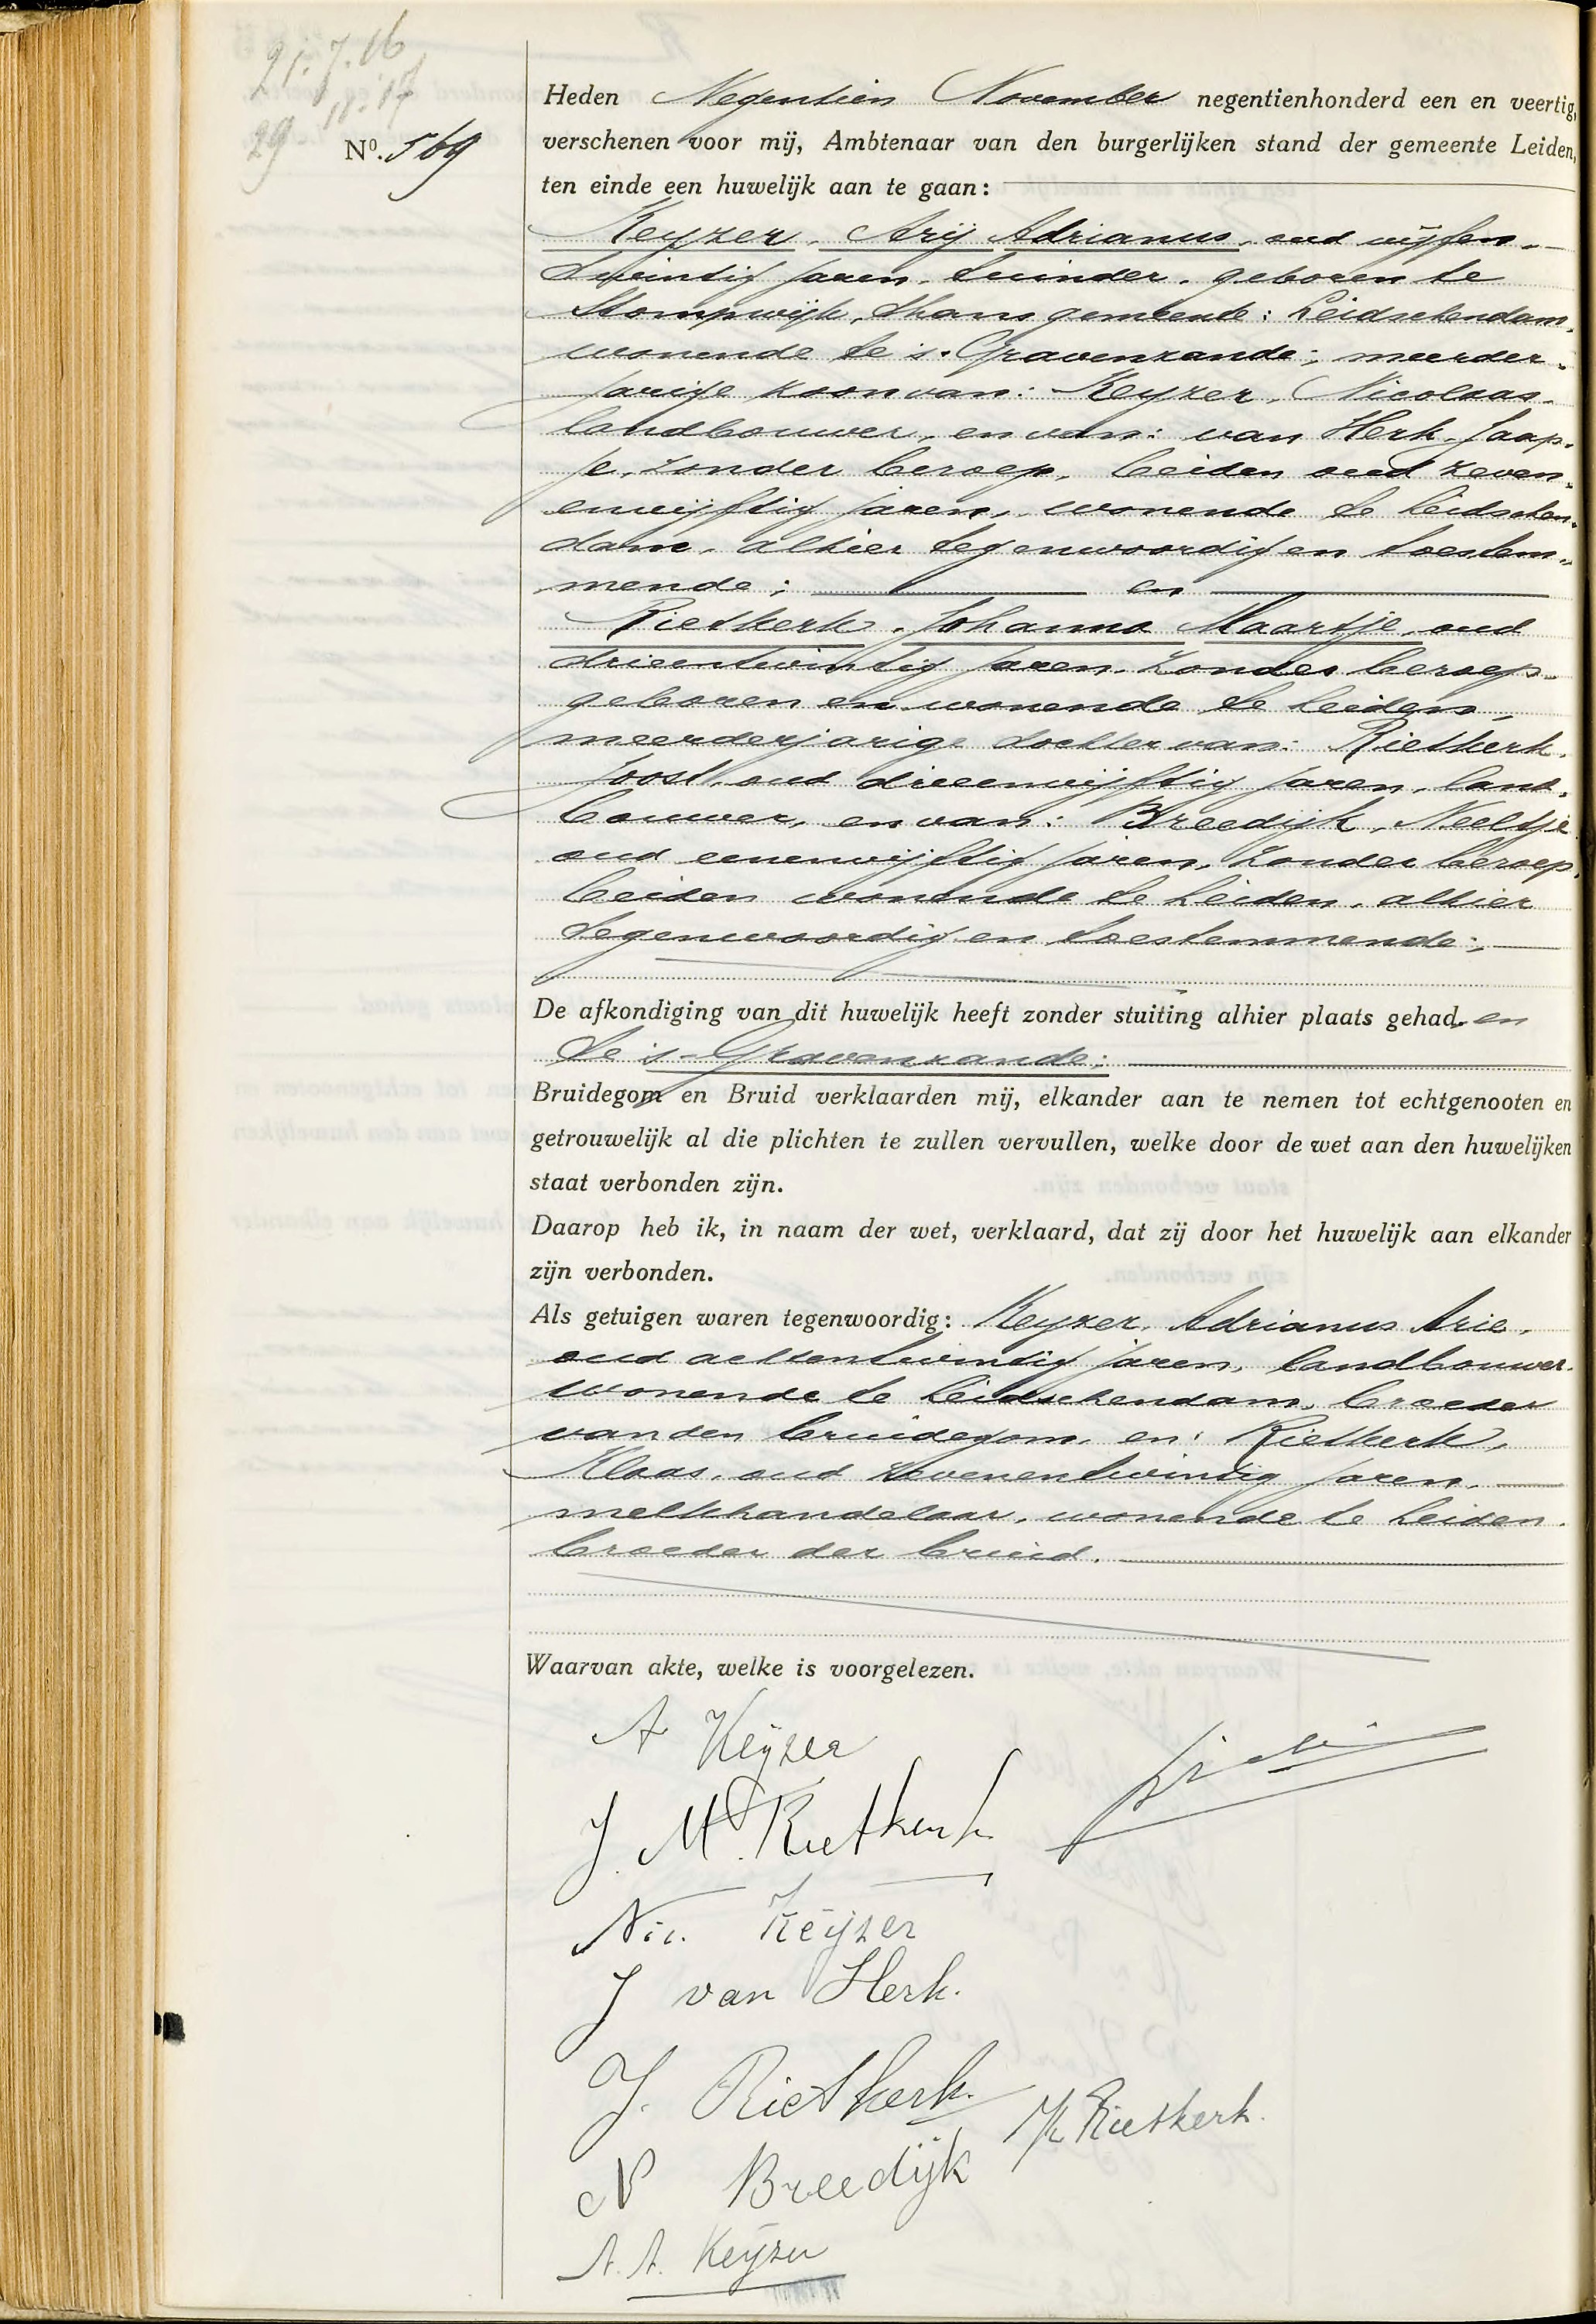 21.7.16
18.17
29
Nº. 569
Heden Negentien November negentienhonderd een en veertig,
verschenen voor mij, Ambtenaar van den burgerlijken stand der gemeente Leiden,
ten einde een huwelijk aan te gaan:
Keyzer, Arij Adrianus, oud vijfen-
twintig jaren, tuinder, geboren te
Stompwijk, thans gemeente: Leidschendam,
wonende te 's-Gravenzande; meerder-
jarige zoon van: Keyzer, Nicolaas,
landbouwer, en van: van Herk, Jaap-
je, zonder beroep, beiden oud zeven-
envijftig jaren, wonende te Leidschen-
dam, alhier tegenwoordig en toestem-
mende; en
Rietkerk, Johanna Maartje, oud
drieentwintig jaren, zonder beroep,
geboren en wonende te Leiden,
meerderjarige dochter van: Rietkerk,
Joost, oud drieenvijftig jaren, land-
bouwer, en van: Breedijk, Neeltje
oud eenenvijftig jaren, zonder beroep,
beiden wonende te Leiden, alhier
tegenwoordig en toestemmende;
De afkondiging van dit huwelijk heeft zonder stuiting alhier plaats gehad en
te 's-Gravenzande;
Bruidegom en Bruid verklaarden mij, elkander aan te nemen tot echtgenooten en
getrouwelijk al die plichten te zullen vervullen, welke door de wet aan den huwelijken
staat verbonden zijn.
Daarop heb ik, in naam der wet, verklaard, dat zij door het huwelijk aan elkander
zijn verbonden.
Als getuigen waren tegenwoordig: Keyzer, Adrianus Arie,
oud achtentwintig jaren, landbouwer,
wonende te Leidschendam, broeder
van den bruidegom, en: Rietkerk,
Klaas, oud zevenentwintig jaren,
melkhandelaar, wonende te Leiden,
broeder der bruid.
Waarvan akte, welke is voorgelezen.
A Keijzer
J. M. Rietkerk
Nic. Keijzer
J van Herk.
J. Rietkerk.
K Rietkerk.
N Breedijk
A. A. Keijzer